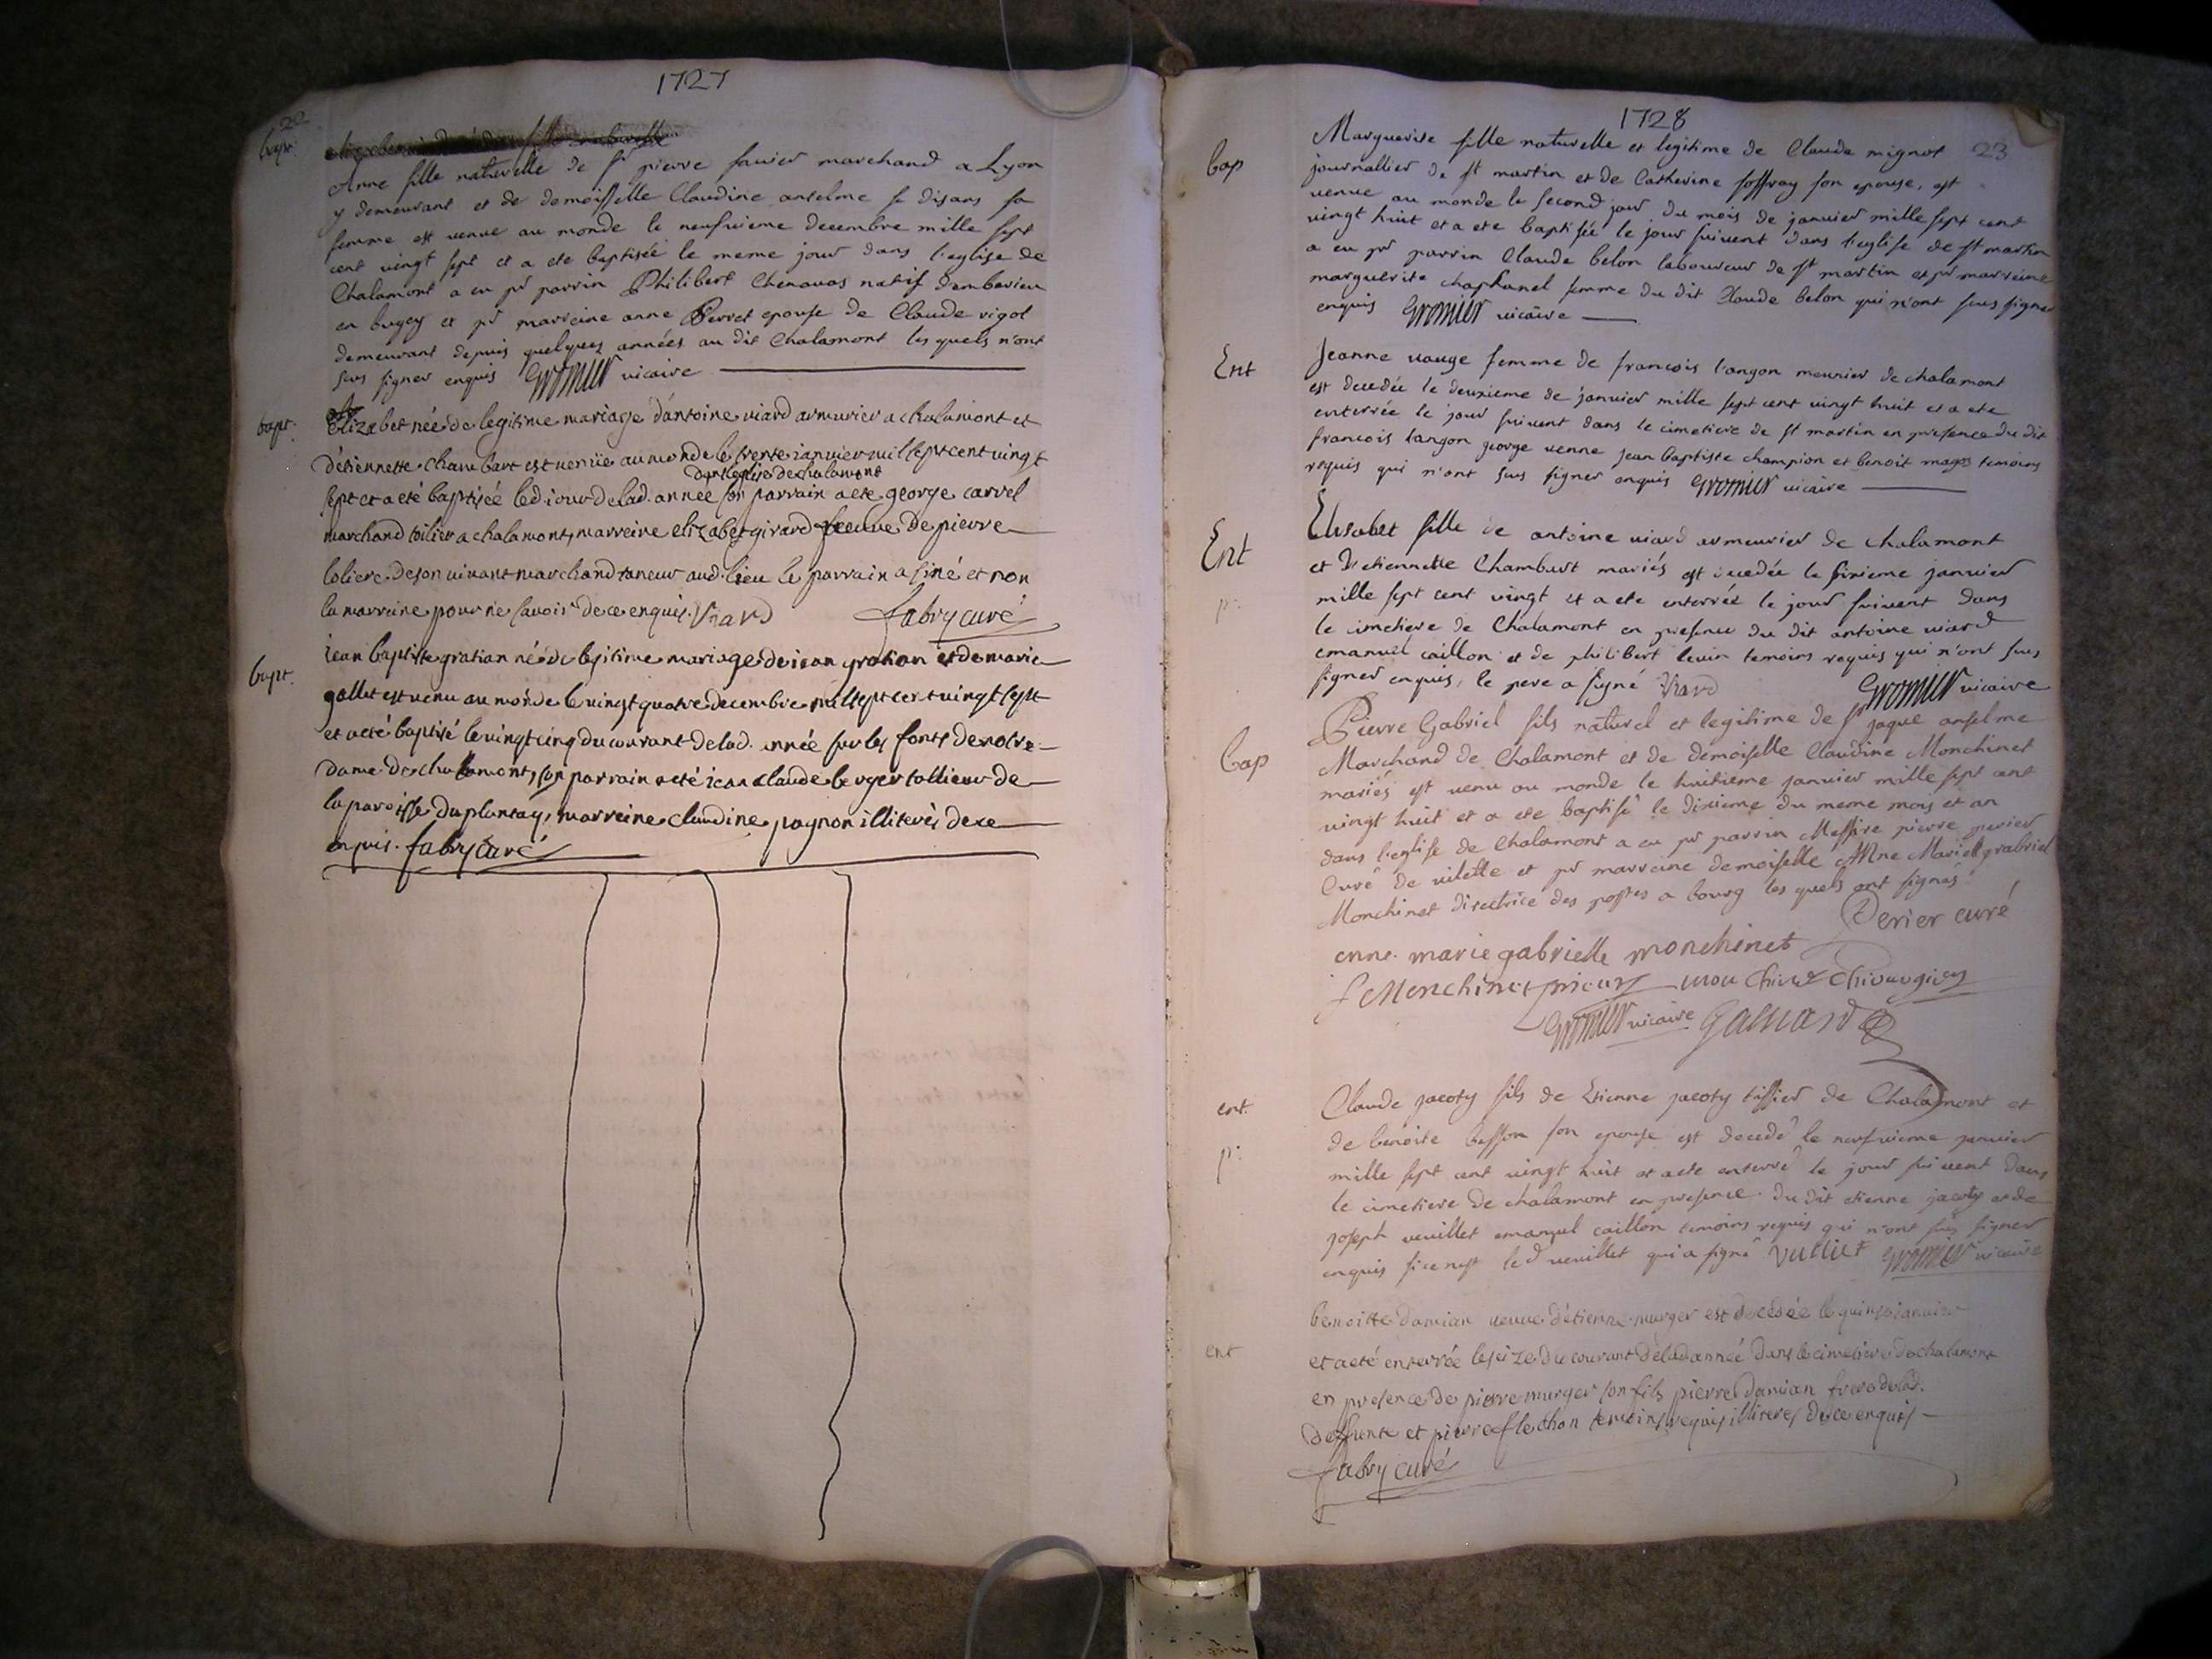 1727
22
bapt.
Anne fille naturelle de Sr pierre favier marchand a Lyon
y demeurant et de demoisselle Claudine anselme se disans sa
femme est venue au monde le neufvieme decembre mille sept
cent vingt sept et a ete baptisée le meme jour dans l'eglise de
Chalamont a eu pr parrin Philibert Chenavas natif dembevieu
en bugey et pr marreine anne Perret epouse de Claude rigol
demeurant depuis quelques années au dit Chalamont les quels n'ont
sus signer enquis Gromier vicaire
bapt.
Elizabet née de legitime mariage d'antoine viard armurier a chalamont et
d'etiennette chambart est venüe au monde le trente janvier mil sept cent vingt
dans leglise de chalamont
sept et a eté baptisée led. jour de lad. année son parrain a ete george carrel
marchand toilier a chalamont, marreine elizabet girard veuve de pierre
loliere de son vivant marchand taneur aud. lieu le parrain a siné et non
la marreine pour ne savoir de ce enquis. Viard fabry curé
bapt.
jean baptiste gratian né de legitime mariage de jean gratian et de marie
gallet est venu au monde le vingt quatre decembre mil sept cent vingt sept
et a eté baptisé le vingt cinq du courant de lad. année sur les fonts de notre
dame de chalamont, son parrain a eté jean claude berger tallieur de
la paroisse du plantay, marreine claudine pagnon illiterés de ce
enquis. fabry curé
1728
23
bap
Marguerite fille naturelle et legitime de Claude mignot
journallier de st martin et de Catherine soffray son epouse, est
venue au monde le second jour du mois de janvier mille sept cent
vingt huit et a ete baptisée le jour suivent dans l'eglise de st martin
a eu pr parrin Claude belon laboureur de st martin et pr marreine
marguerite chaphanel femme du dit Claude belon qui n'ont seus signer
enquis Gromier vicaire
Ent
Jeanne vauge femme de francois langon meunier de chalamont
est decedée le deuxieme de janvier mille sept cent vingt huit et a ete
enterrée le jour suivent dans le cimetiere de st martin en presence du dit
francois langon george venne jean baptiste champion et benoit temoins
requis qui n'ont sus signer enquis Gromier vicaire
Ent
p.
Elisabet fille de antoine viard armeurier de chalamont
et d'etiennette Chambart mariés est decedée le sixieme janvier
mille sept cent vingt et a ete enterrée le jour suivent dans
le cimetiere de Chalamont en presence du dit antoine viard
emanuel caillon et de philibert levin temoins requis qui n'ont sus
signer enquis, le pere a signé Viard Gromier vicaire
bap
Pierre Gabriel fils naturel et legitime de Sr jaque anselme
Marchand de Chalamont et de demoiselle Claudine Monchinet
mariés est venu au monde le huitieme janvier mille sept cent
vingt huit et a ete baptisé le dixieme du meme mois et an
dans l'eglise de Chalamont a eu pr parrin Messire pierre perier
Curé de vilette et pr marreine demoiselle Anne Marie gabriel
Monchinet directrice des postes a bourg les quels ont signés
Perier curé
anne marie gabrielle monchinet
f Monchinet prieur mouchinet Chirourgien
Gromier vicaire
ent.
p.
Claude jacoty fils de Etienne jacoty tissier de Chalamont et
de benoite besson son epouse est decedé le neufvieme janvier
mille sept cent vingt huit et a ete enterré le jour suivent dans
le cimetiere de chalamont en presence du dit etienne jacoty et de
joseph veuillet emanuel caillon temoins requis qui n'ont sus signer
enquis si ce nest led veuillet qui a signé Vulliet Gromier vicaire
ent
benoitte damian veuve d'etienne murger est decedée le quinze janvier
et a eté enterrée le seize du courant de lad année dans le cimetiere de chalamont
en presence de pierre murger son fils pierre damian frere de lad.
deffunte et pierre flechon temoins requis illiterés de ce enquis
fabry curé